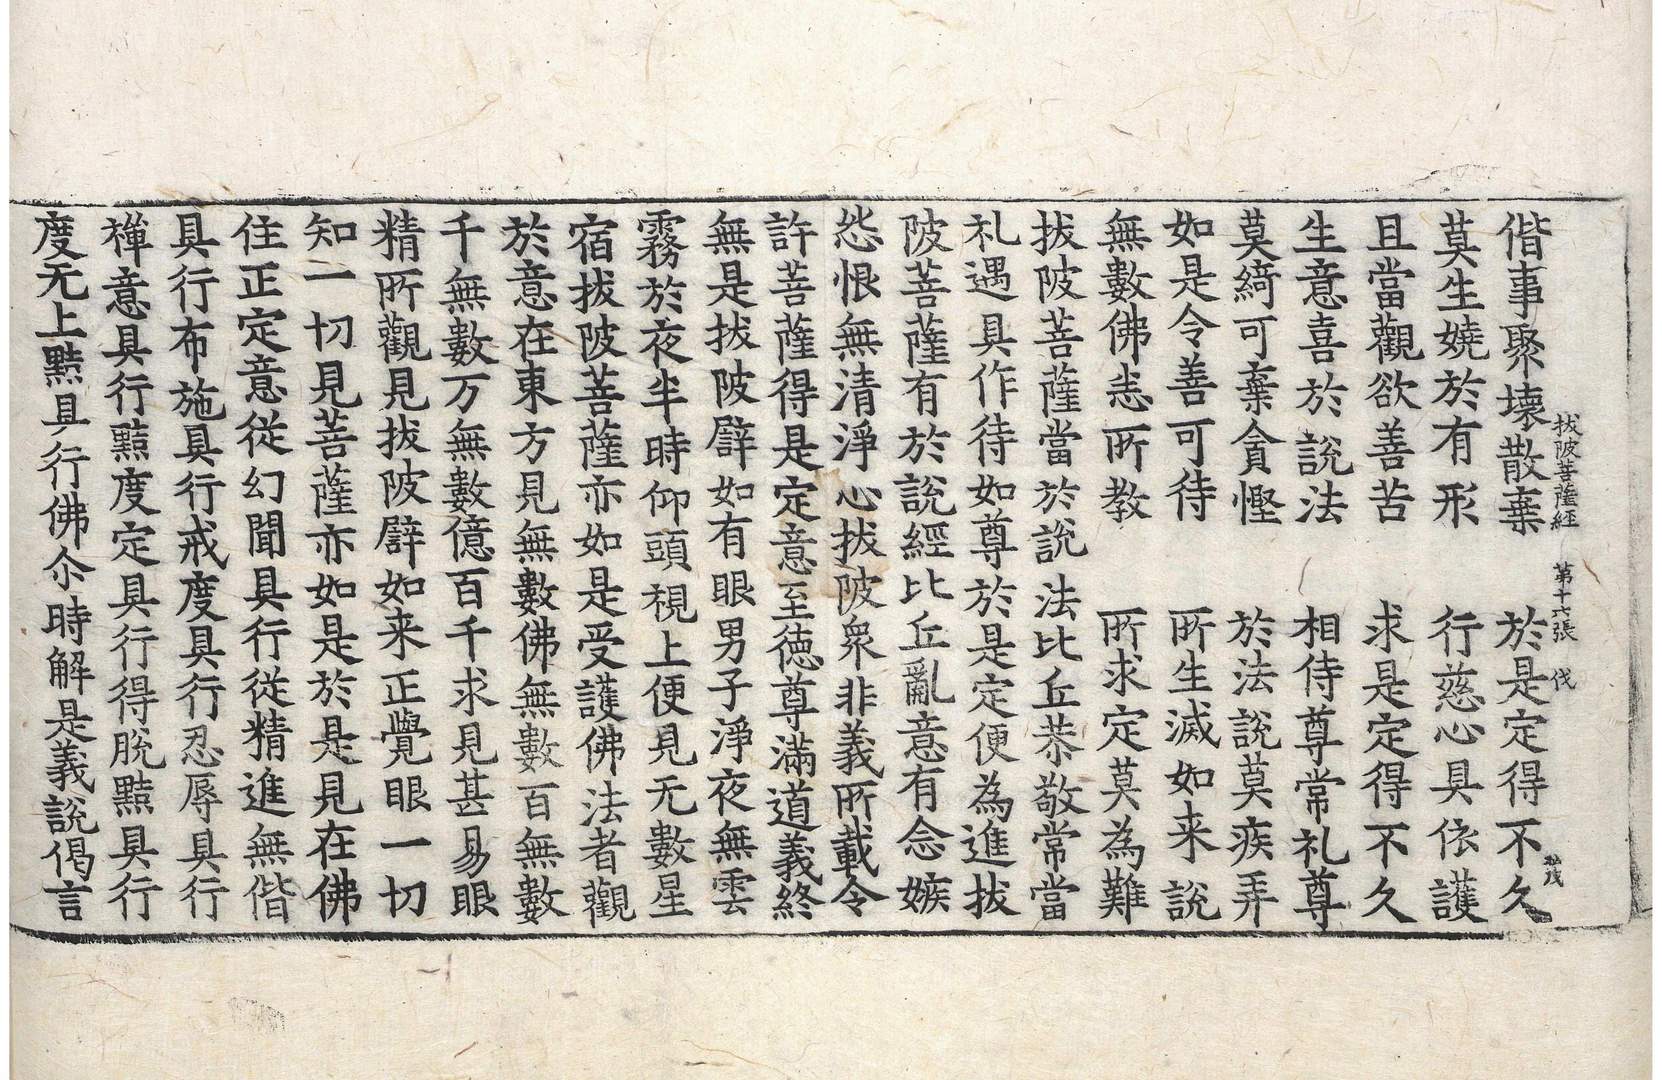 拔陂菩薩經 第十六張 伐
偕事聚壞散棄 於是定得不久
莫生嬈於有形 行慈心具依護
且當觀欲善苦 求是定得不久
生意喜於說法 相侍尊常礼尊
莫綺可棄貪慳 於法說莫疾弄
如是令善可待 所生滅如来說
無數佛恚所教 所求定莫為難
拔陂菩薩當於說法比丘恭敬常當
礼遇具作待如尊於是定便為進拔
陂菩薩有於說經比丘亂意有念嫉
怨恨無清淨心拔陂衆非義所載令
許菩薩得是定意至德尊滿道義終
無是拔陂辟如有眼男子淨夜無雲
霧於夜半時仰頭視上便見无數星
宿拔陂菩薩亦如是受護佛法者觀
於意在東方見無數佛無數百無數
千無數万無數億百千求見甚易眼
精所觀見拔陂辟如来正覺眼一切
知一切見菩薩亦如是於是見在佛
住正定意從幻聞具行從精進無偕
具行布施具行戒度具行忍辱具行
禅意具行黠度定具行得脫黠具行
度无上黠具行佛尒時解是義說偈言